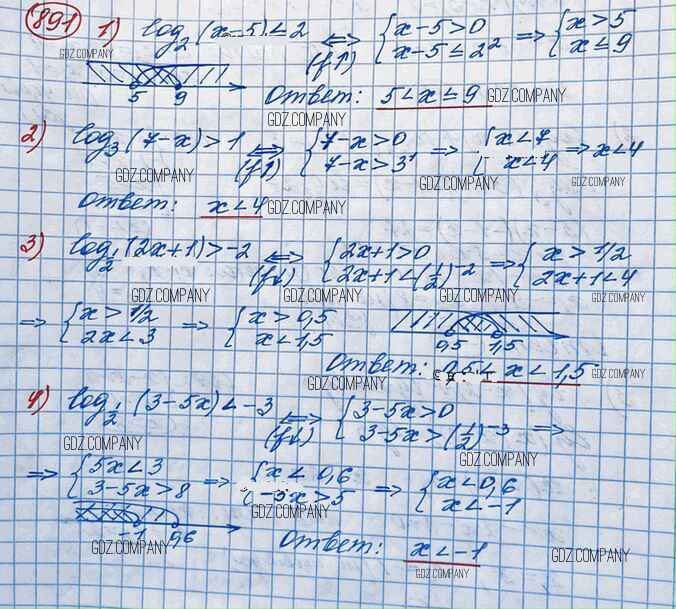 891
1) log₂(x-5) ≤ 2 ⇔ (f↑) { x-5>0 x-5≤2² ⇒ { x>5 x≤9
GDZ.COMPANY
5 9 Ответ: 5<x≤9 GDZ.COMPANY
GDZ.COMPANY
2) log₃(7-x)>1 ⇔ (f↑) { 7-x>0 7-x>3¹ ⇒ { x<7 x<4 ⇒ x<4
GDZ.COMPANY GDZ.COMPANY GDZ.COMPANY
Ответ: x<4 GDZ.COMPANY
3) log_{1/2}(2x+1)>-2 ⇔ (f↓) { 2x+1>0 2x+1<(1/2)⁻² ⇒ { x>1/2 2x+1<4
GDZ.COMPANY GDZ.COMPANY GDZ.COMPANY GDZ.COMPANY
⇒ { x>1/2 2x<3 ⇒ { x>0,5 x<1,5 0,5 1,5
Ответ: 0,5<x<1,5 GDZ.COMPANY
GDZ.COMPANY
4) log_{1/2}(3-5x)<-3 ⇔ (f↓) { 3-5x>0 3-5x>(1/2)⁻³ ⇒
GDZ.COMPANY GDZ.COMPANY
⇒ { 5x<3 3-5x>8 ⇒ { x<0,6 -5x>5 ⇒ { x<0,6 x<-1
GDZ.COMPANY
-1 0,6 Ответ: x<-1
GDZ.COMPANY GDZ.COMPANY
GDZ.COMPANY